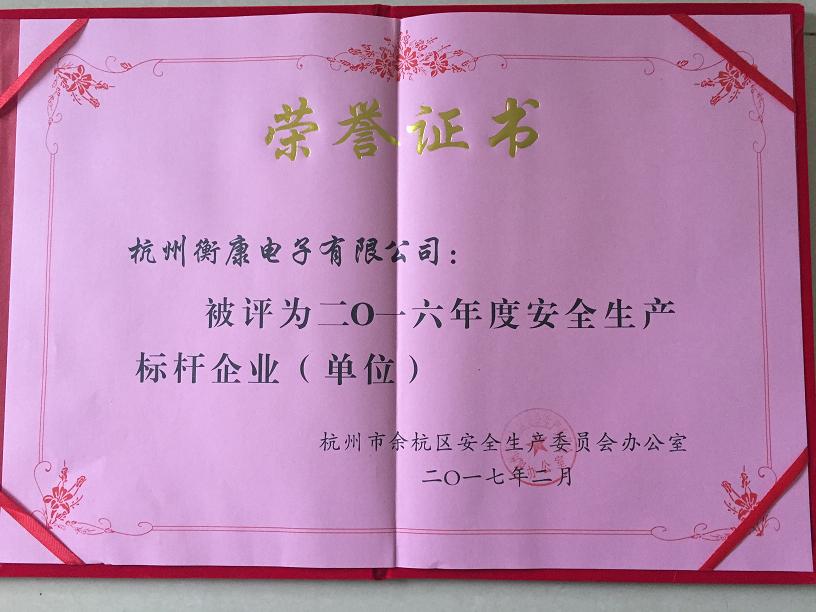 荣誉证书
杭州衡康电子有限公司：
被评为二〇一六年度安全生产
标杆企业（单位）
杭州市余杭区安全生产委员会办公室
二〇一七年二月